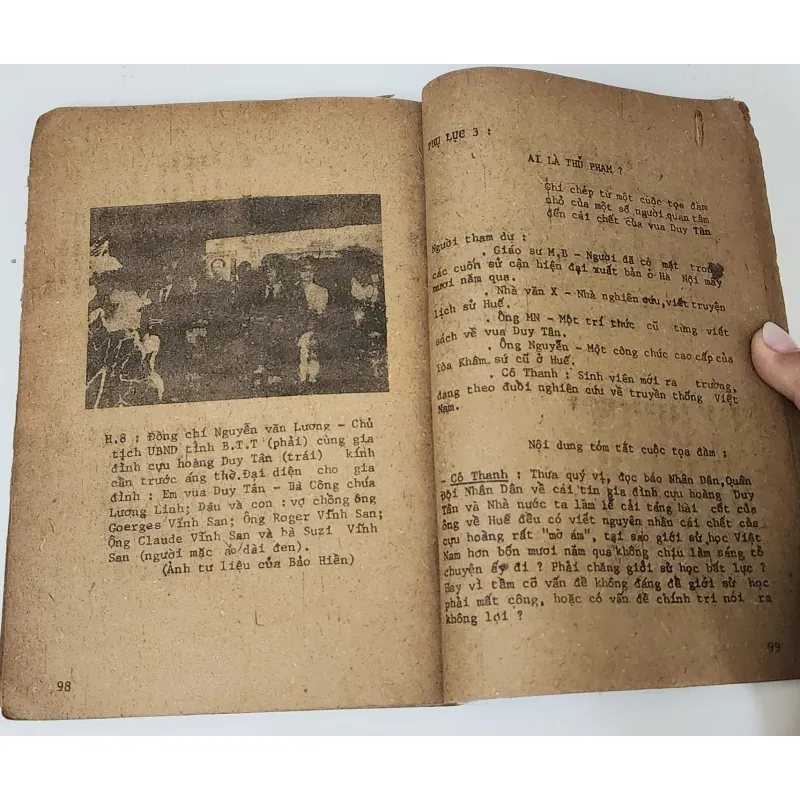 H.8 : Đồng chí Nguyễn văn Lương - Chủ
tịch UBND tỉnh B.T.T (phải) cùng gia
đình cựu hoàng Duy Tân (trái) kính
cẩn trước áng thờ. Đại diện cho gia
đình : Em vua Duy Tân - Bà Công chúa
Lương Linh; Dâu và con : vợ chồng ông
Goerges Vĩnh San; Ông Roger Vĩnh San;
Ông Claude Vĩnh San và bà Suzi Vĩnh
San (người mặc áo dài đen).
(Ảnh tư liệu của Bảo Hiền)
98
PHỤ LỤC 3 :
AI LÀ THỦ PHẠM ?
Ghi chép từ một cuộc tọa đàm
nhỏ của một số người quan tâm
đến cái chết của vua Duy Tân
Người tham dự :
. Giáo sư M.B - Người đã có mặt trong
các cuốn sử cận hiện đại xuất bản ở Hà Nội mấy
mươi năm qua.
. Nhà văn X - Nhà nghiên cứu, viết truyện
lịch sử Huế.
. Ông MN - Một trí thức cũ từng viết
sách về vua Duy Tân.
. Ông Nguyễn - Một công chức cao cấp của
tòa Khâm sứ cũ ở Huế.
. Cô Thanh : Sinh viên mới ra trường,
đang theo đuổi nghiên cứu về truyền thống Việt
Nam.
Nội dung tóm tắt cuộc tọa đàm :
- Cô Thanh : Thưa quý vị, đọc báo Nhân Dân, Quân
Đội Nhân Dân về cái tin gia đình cựu hoàng Duy
Tân và Nhà nước ta làm lễ cải táng hài cốt của
ông về Huế đều có viết nguyên nhân cái chết của
cựu hoàng rất "mờ ám", tại sao giới sử học Việt
Nam hơn bốn mươi năm qua không chịu làm sáng tỏ
chuyện ấy đi ? Phải chăng giới sử học bất lực ?
Hay vì tầm cỡ vấn đề không đáng để giới sử học
phải mất công, hoặc có vấn đề chính trị nói ra
không lợi ?
99